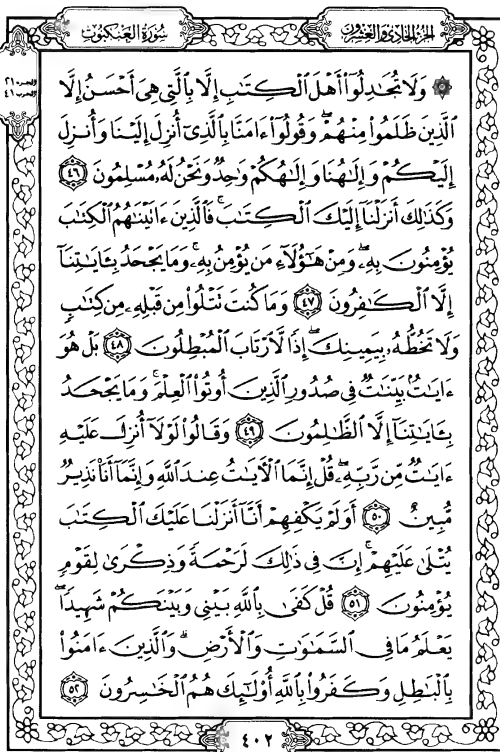 سُورَةُ العَنكبُوت
الجزءُ الحَادِي وَالعِشرُون
الجزء ٢١
الحزب ٤١
۞ وَلَا تُجَٰدِلُوٓا۟ أَهْلَ ٱلْكِتَٰبِ إِلَّا بِٱلَّتِى هِىَ أَحْسَنُ إِلَّا
ٱلَّذِينَ ظَلَمُوا۟ مِنْهُمْ ۖ وَقُولُوٓا۟ ءَامَنَّا بِٱلَّذِىٓ أُنزِلَ إِلَيْنَا وَأُنزِلَ
إِلَيْكُمْ وَإِلَٰهُنَا وَإِلَٰهُكُمْ وَٰحِدٌ وَنَحْنُ لَهُۥ مُسْلِمُونَ ٤٦
وَكَذَٰلِكَ أَنزَلْنَآ إِلَيْكَ ٱلْكِتَٰبَ ۚ فَٱلَّذِينَ ءَاتَيْنَٰهُمُ ٱلْكِتَٰبَ
يُؤْمِنُونَ بِهِۦ ۖ وَمِنْ هَٰٓؤُلَآءِ مَن يُؤْمِنُ بِهِۦ ۚ وَمَا يَجْحَدُ بِـَٔايَٰتِنَآ
إِلَّا ٱلْكَٰفِرُونَ ٤٧ وَمَا كُنتَ تَتْلُوا۟ مِن قَبْلِهِۦ مِن كِتَٰبٍ
وَلَا تَخُطُّهُۥ بِيَمِينِكَ ۖ إِذًا لَّٱرْتَابَ ٱلْمُبْطِلُونَ ٤٨ بَلْ هُوَ
ءَايَٰتٌۢ بَيِّنَٰتٌ فِى صُدُورِ ٱلَّذِينَ أُوتُوا۟ ٱلْعِلْمَ ۚ وَمَا يَجْحَدُ
بِـَٔايَٰتِنَآ إِلَّا ٱلظَّٰلِمُونَ ٤٩ وَقَالُوا۟ لَوْلَآ أُنزِلَ عَلَيْهِ
ءَايَٰتٌ مِّن رَّبِّهِۦ ۖ قُلْ إِنَّمَا ٱلْءَايَٰتُ عِندَ ٱللَّهِ وَإِنَّمَآ أَنَا۠ نَذِيرٌ
مُّبِينٌ ٥٠ أَوَلَمْ يَكْفِهِمْ أَنَّآ أَنزَلْنَا عَلَيْكَ ٱلْكِتَٰبَ
يُتْلَىٰ عَلَيْهِمْ ۚ إِنَّ فِى ذَٰلِكَ لَرَحْمَةً وَذِكْرَىٰ لِقَوْمٍ
يُؤْمِنُونَ ٥١ قُلْ كَفَىٰ بِٱللَّهِ بَيْنِى وَبَيْنَكُمْ شَهِيدًا ۖ
يَعْلَمُ مَا فِى ٱلسَّمَٰوَٰتِ وَٱلْأَرْضِ ۗ وَٱلَّذِينَ ءَامَنُوا۟
بِٱلْبَٰطِلِ وَكَفَرُوا۟ بِٱللَّهِ أُو۟لَٰٓئِكَ هُمُ ٱلْخَٰسِرُونَ ٥٢
٤٠٢